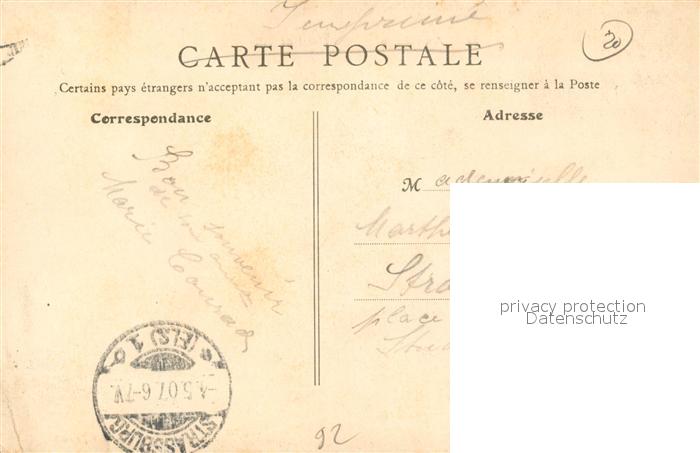 Imprimé
20
CARTE POSTALE
Certains pays étrangers n'acceptant pas la correspondance de ce côté, se renseigner à la Poste
Correspondance
Adresse
Bon souvenir
de
Marie Conrad
Mademoiselle
Marthe
Stra
place
privacy protection
Datenschutz
STRASSBURG
(ELS) 1
4.5.07.6-7V.
92